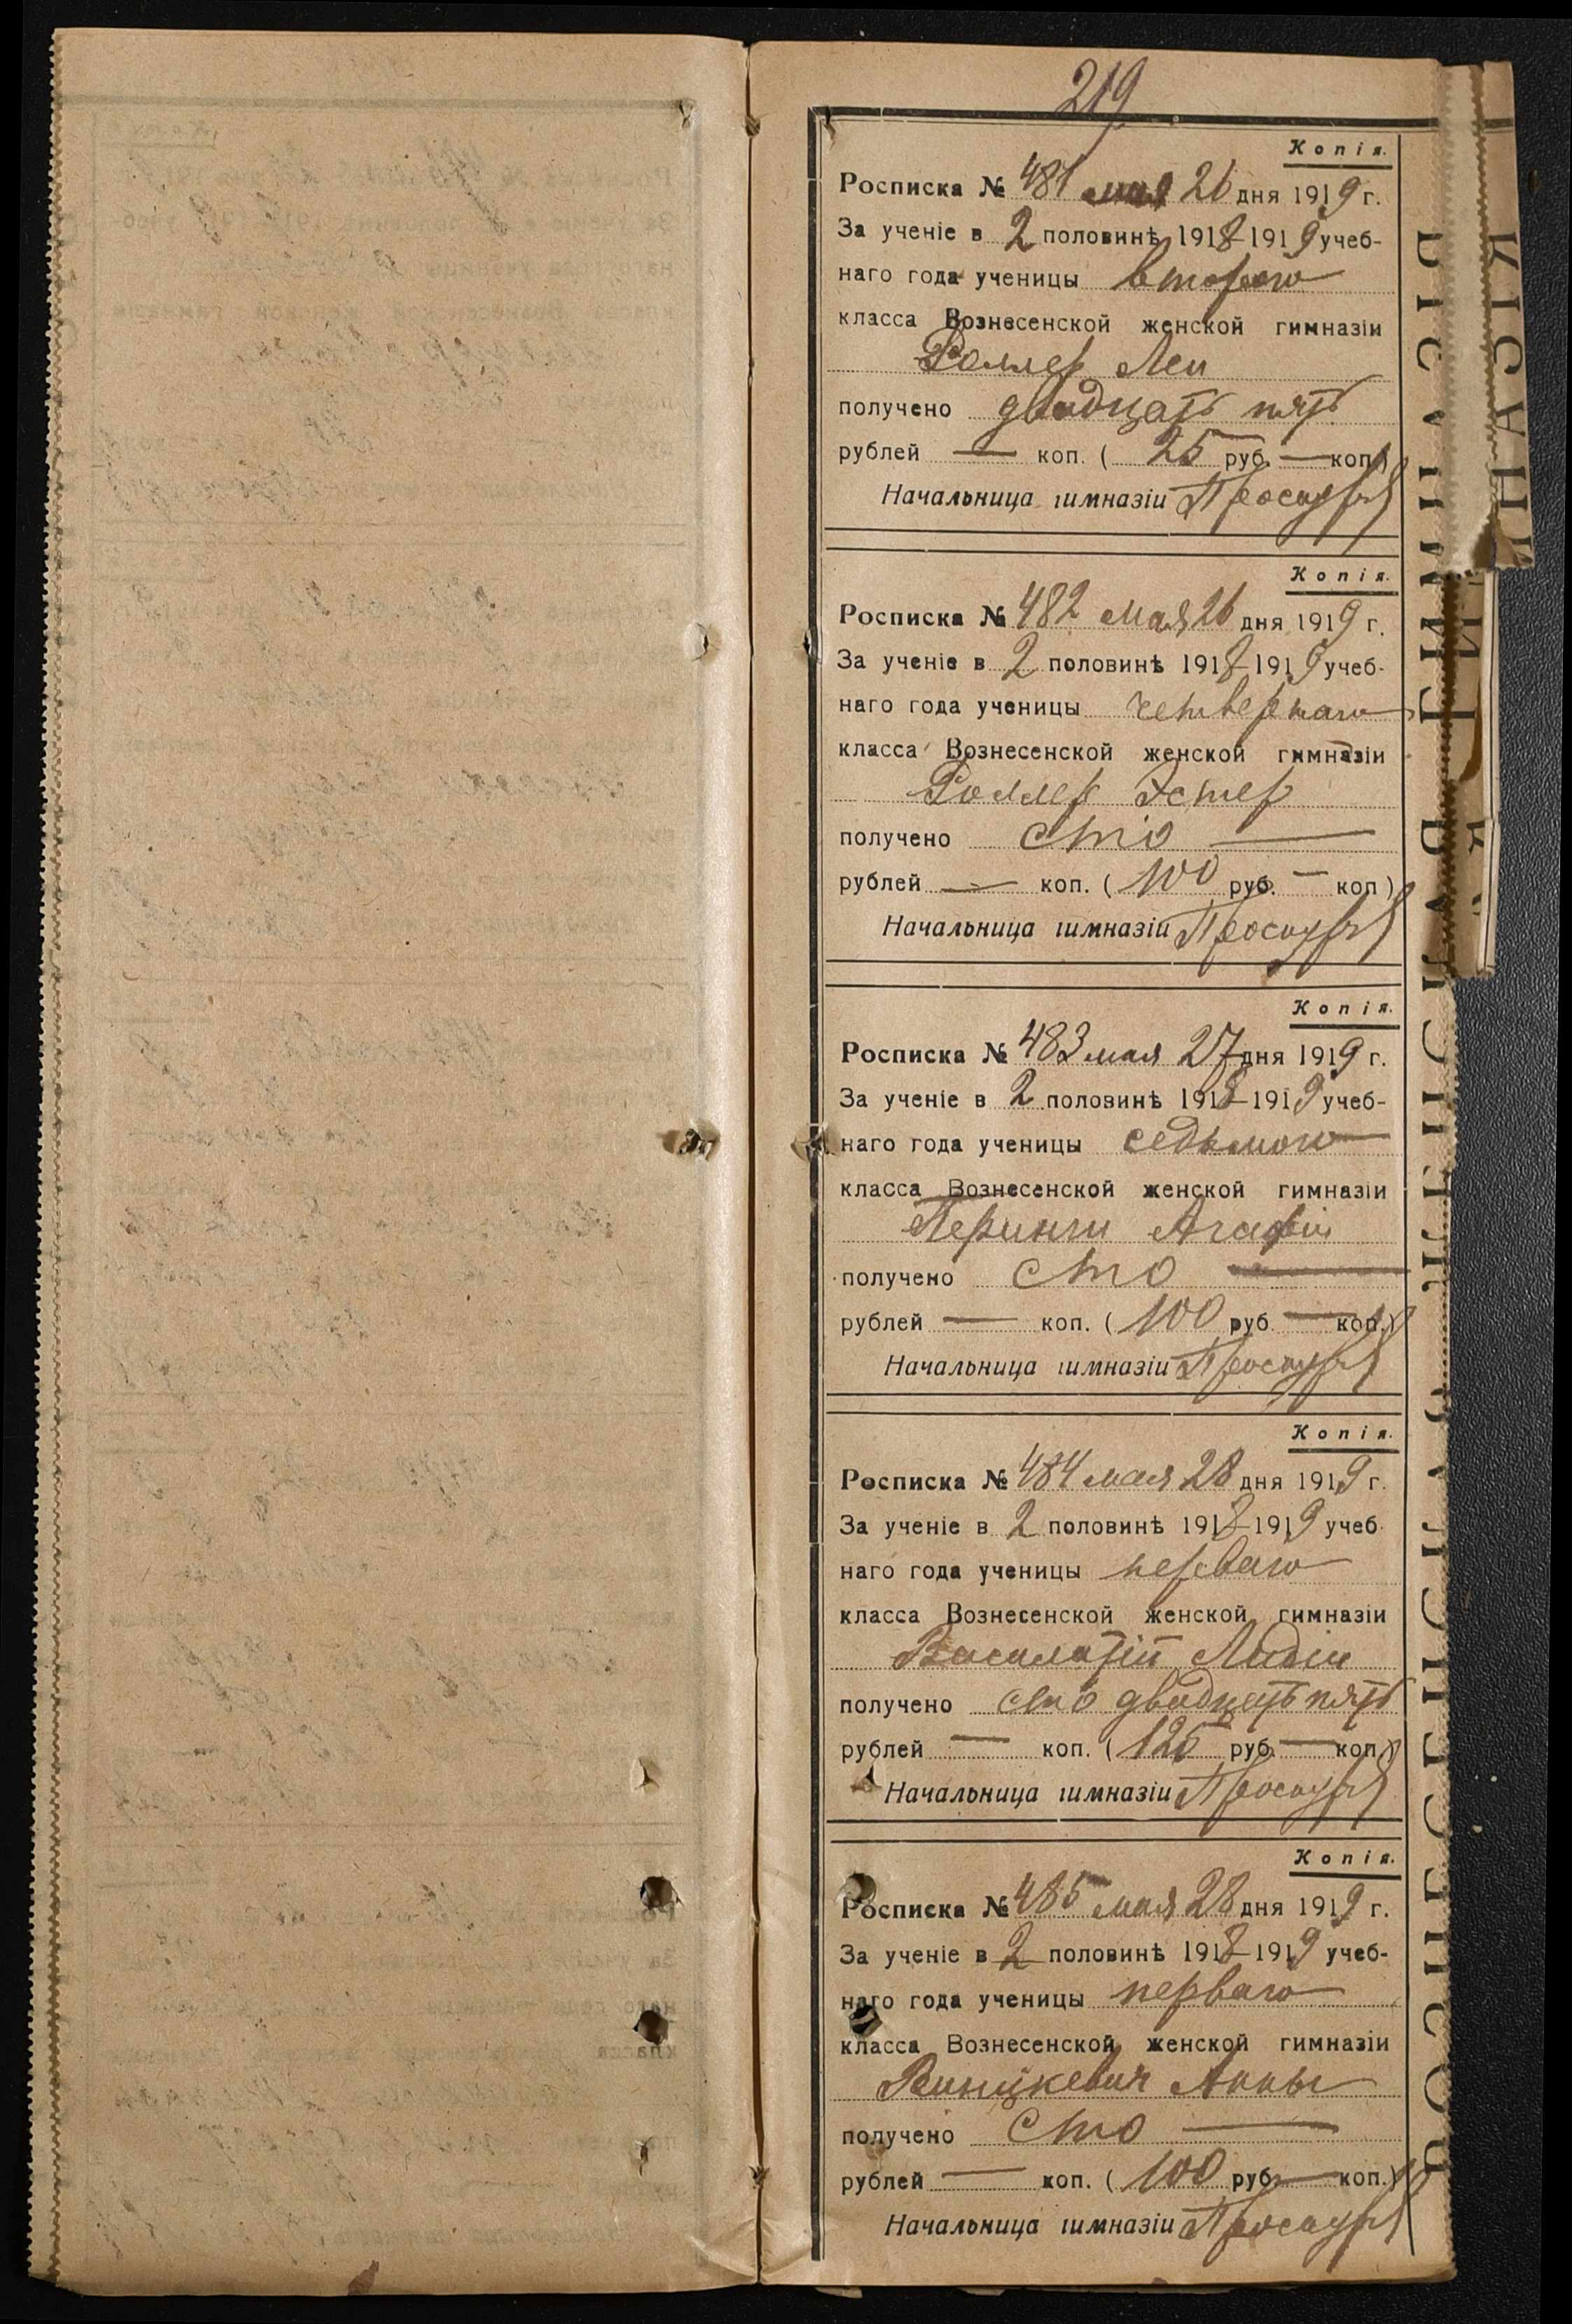 219
Копія.
Росписка № 481 мая 26 дня 1919 г.
За ученіе в 2 половинѣ 1918-1919 учеб-
наго года ученицы второго
класса Вознесенской женской гимназіи
Роллер Леи
получено двадцать пять
рублей — коп. ( 25 руб. — коп.)
Начальница гимназіи
Копія.
Росписка № 482 мая 26 дня 1919 г.
За ученіе в 2 половинѣ 1918-1919 учеб-
наго года ученицы четвертаго
класса Вознесенской женской гимназіи
Роллер Эстер
получено сто —
рублей — коп. ( 100 руб. — коп)
Начальница гимназіи
Копія.
Росписка № 483 мая 27 дня 1919 г.
За ученіе в 2 половинѣ 1918-1919 учеб-
наго года ученицы седьмого
класса Вознесенской женской гимназіи
Агафіи
получено сто —
рублей — коп. ( 100 руб — коп.)
Начальница гимназіи
Копія.
Росписка № 484 мая 28 дня 1919 г.
За ученіе в 2 половинѣ 1918-1919 учеб
наго года ученицы перваго
класса Вознесенской женской гимназіи
Василатій Лидіи
получено сто двадцать пять
рублей — коп. ( 125 руб. — коп.)
Начальница гимназіи
Копія.
Росписка № 485 мая 28 дня 1919 г.
За ученіе в 2 половинѣ 1918-1919 учеб-
наго года ученицы перваго
класса Вознесенской женской гимназіи
Винцкевич Анны
получено сто —
рублей — коп. ( 100 руб. — коп.)
Начальница гимназіи